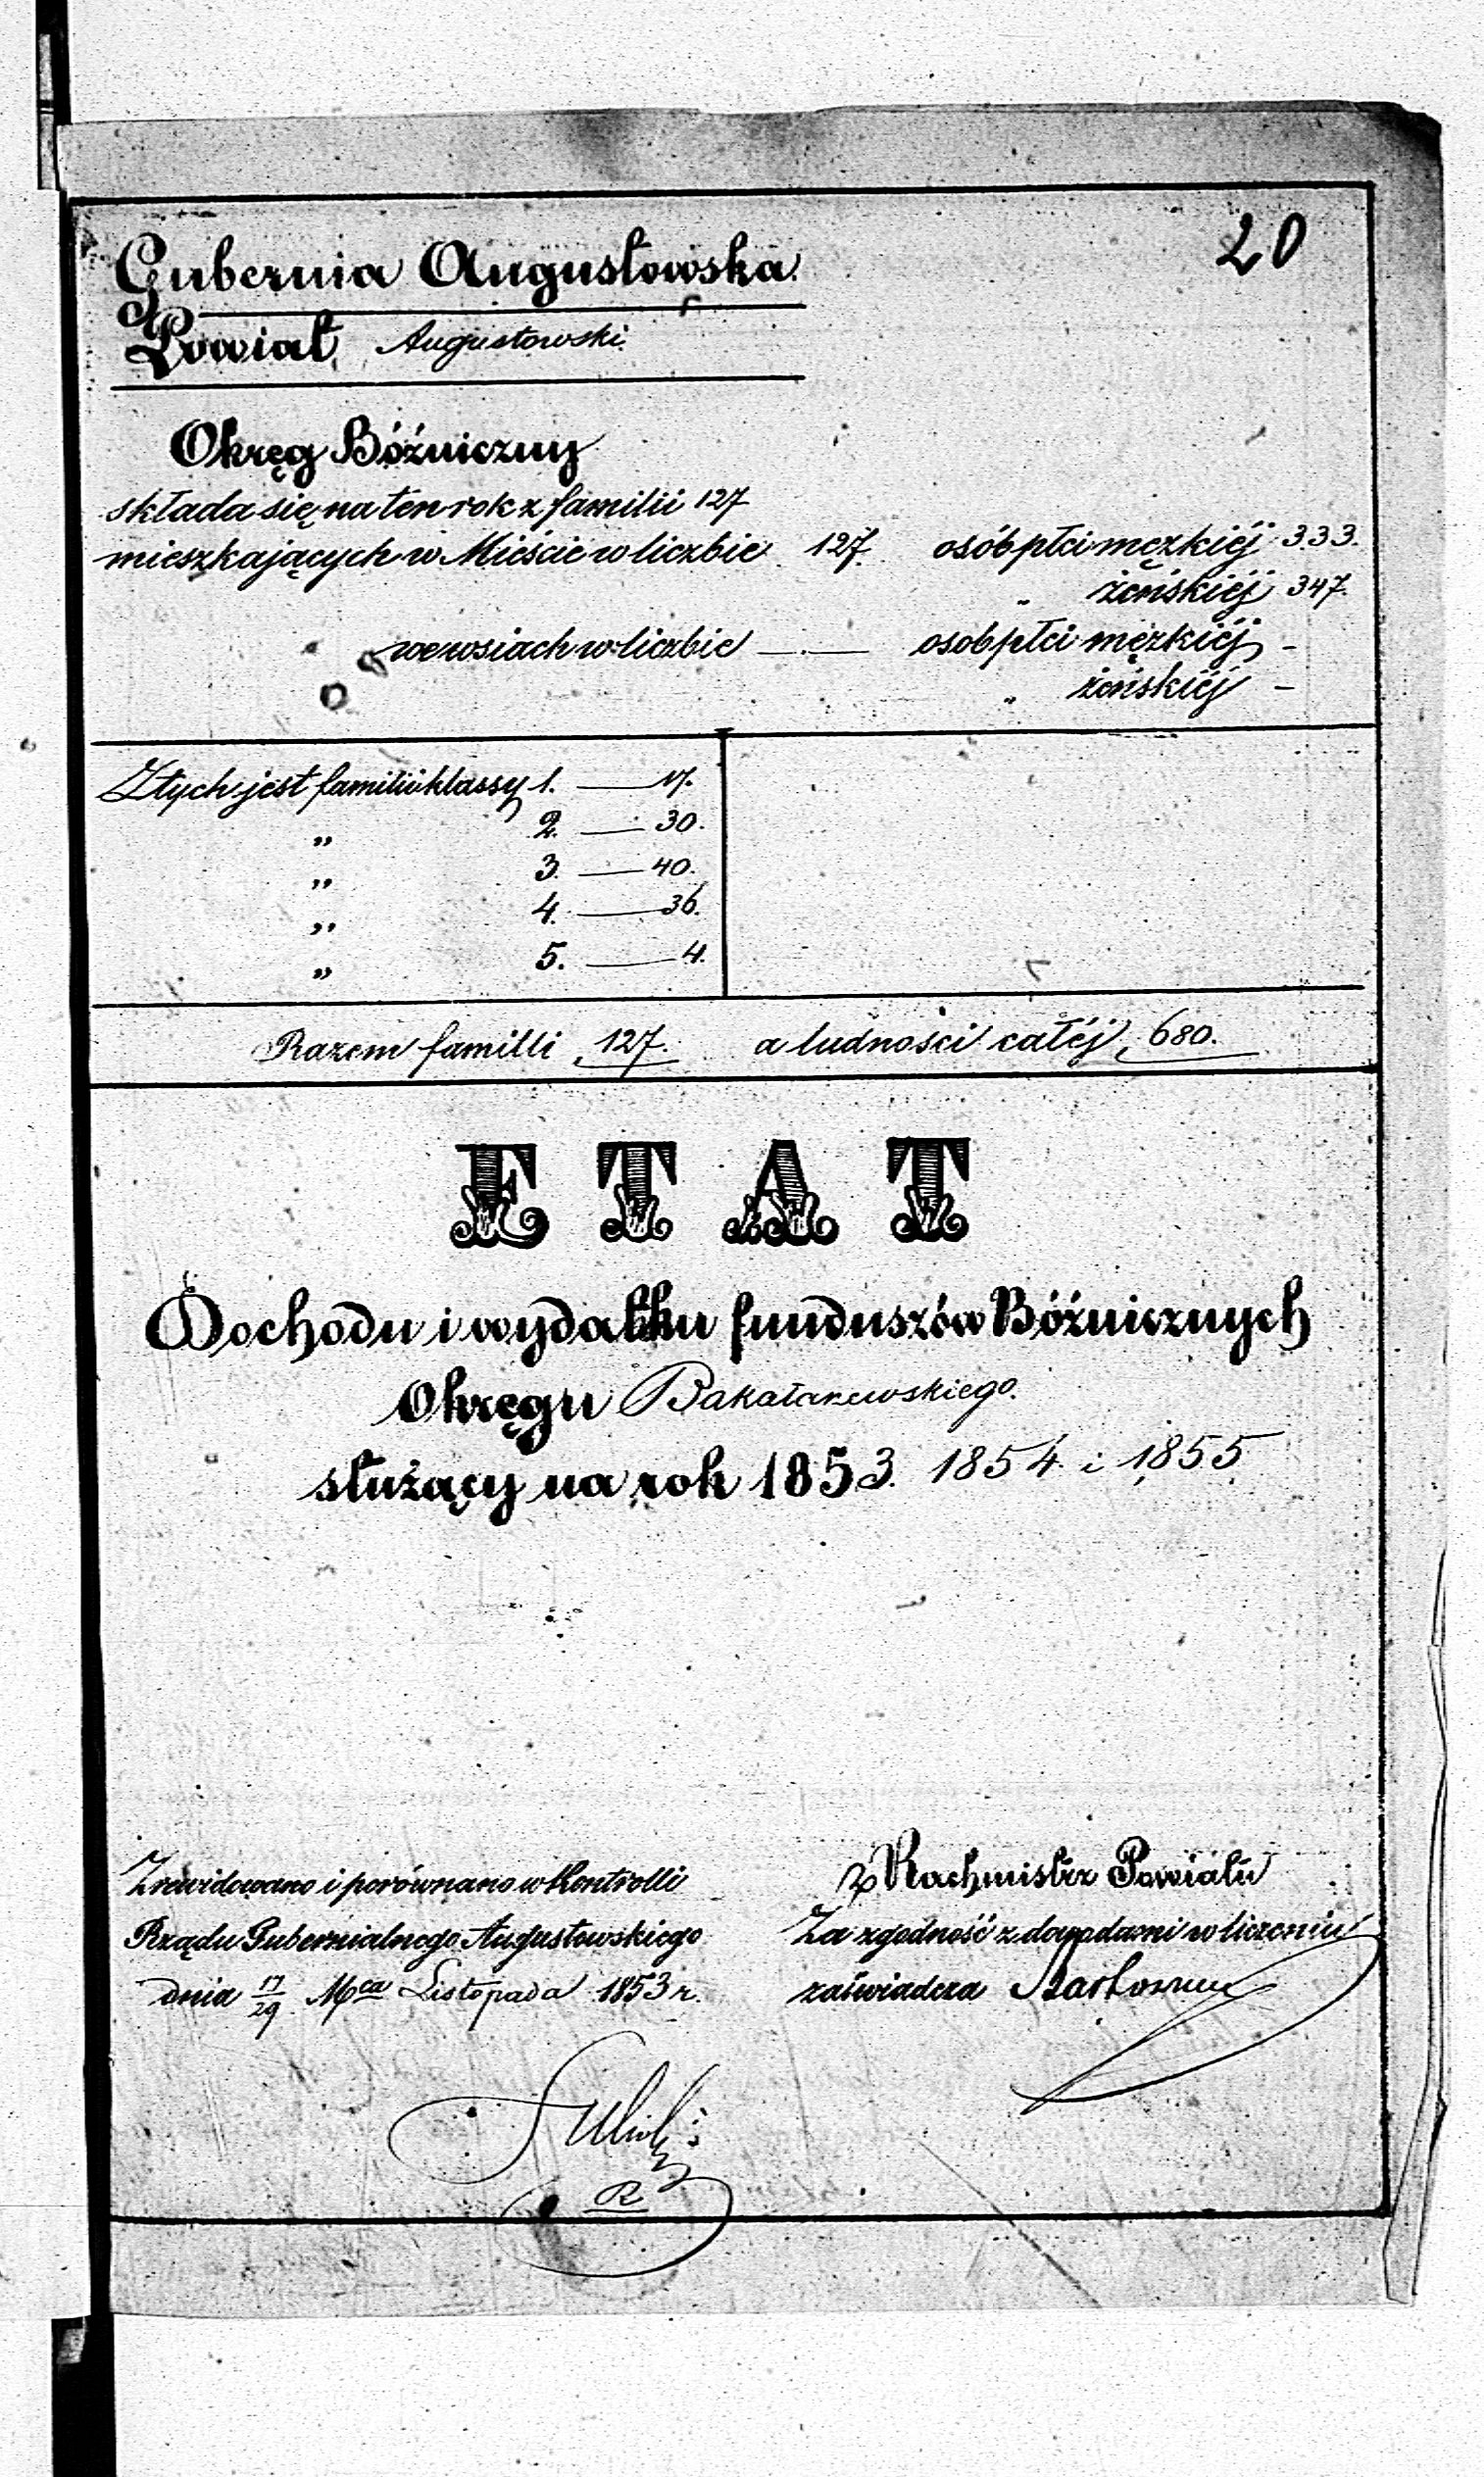 20
Gubernia Augustowska
Powiat Augustowski
Okręg Bóźniczny
składa się na ten rok z familii 127
mieszkających w Mieście w liczbie 127. osób płci męzkiéj 333.
„ żeńskiéj 347.
we wsiach w liczbie — . — osob płci męzkiéj -
„ żeńskiéj -
Z tych jest familii klassy 1. — 17.
„ 2. — 30.
„ 3. — 40.
„ 4. — 36.
„ 5. — 4.
Razem familli 127. a ludności całéj 680.
ETAT
Dochodu i wydatku funduszów Bóźnicznych
Okręgu Bakałarzewskiego.
służący na rok 1853. 1854. i 1855
Zrewidowano i porównano w Kontrolli
Rządu Gubernialnego Augustowskiego
dnia 17/29. Mca Listopada 1853 r.
R
Rachmistrz Powiatu
Za zgodność z dowodami w liczeniu
zaświadcza